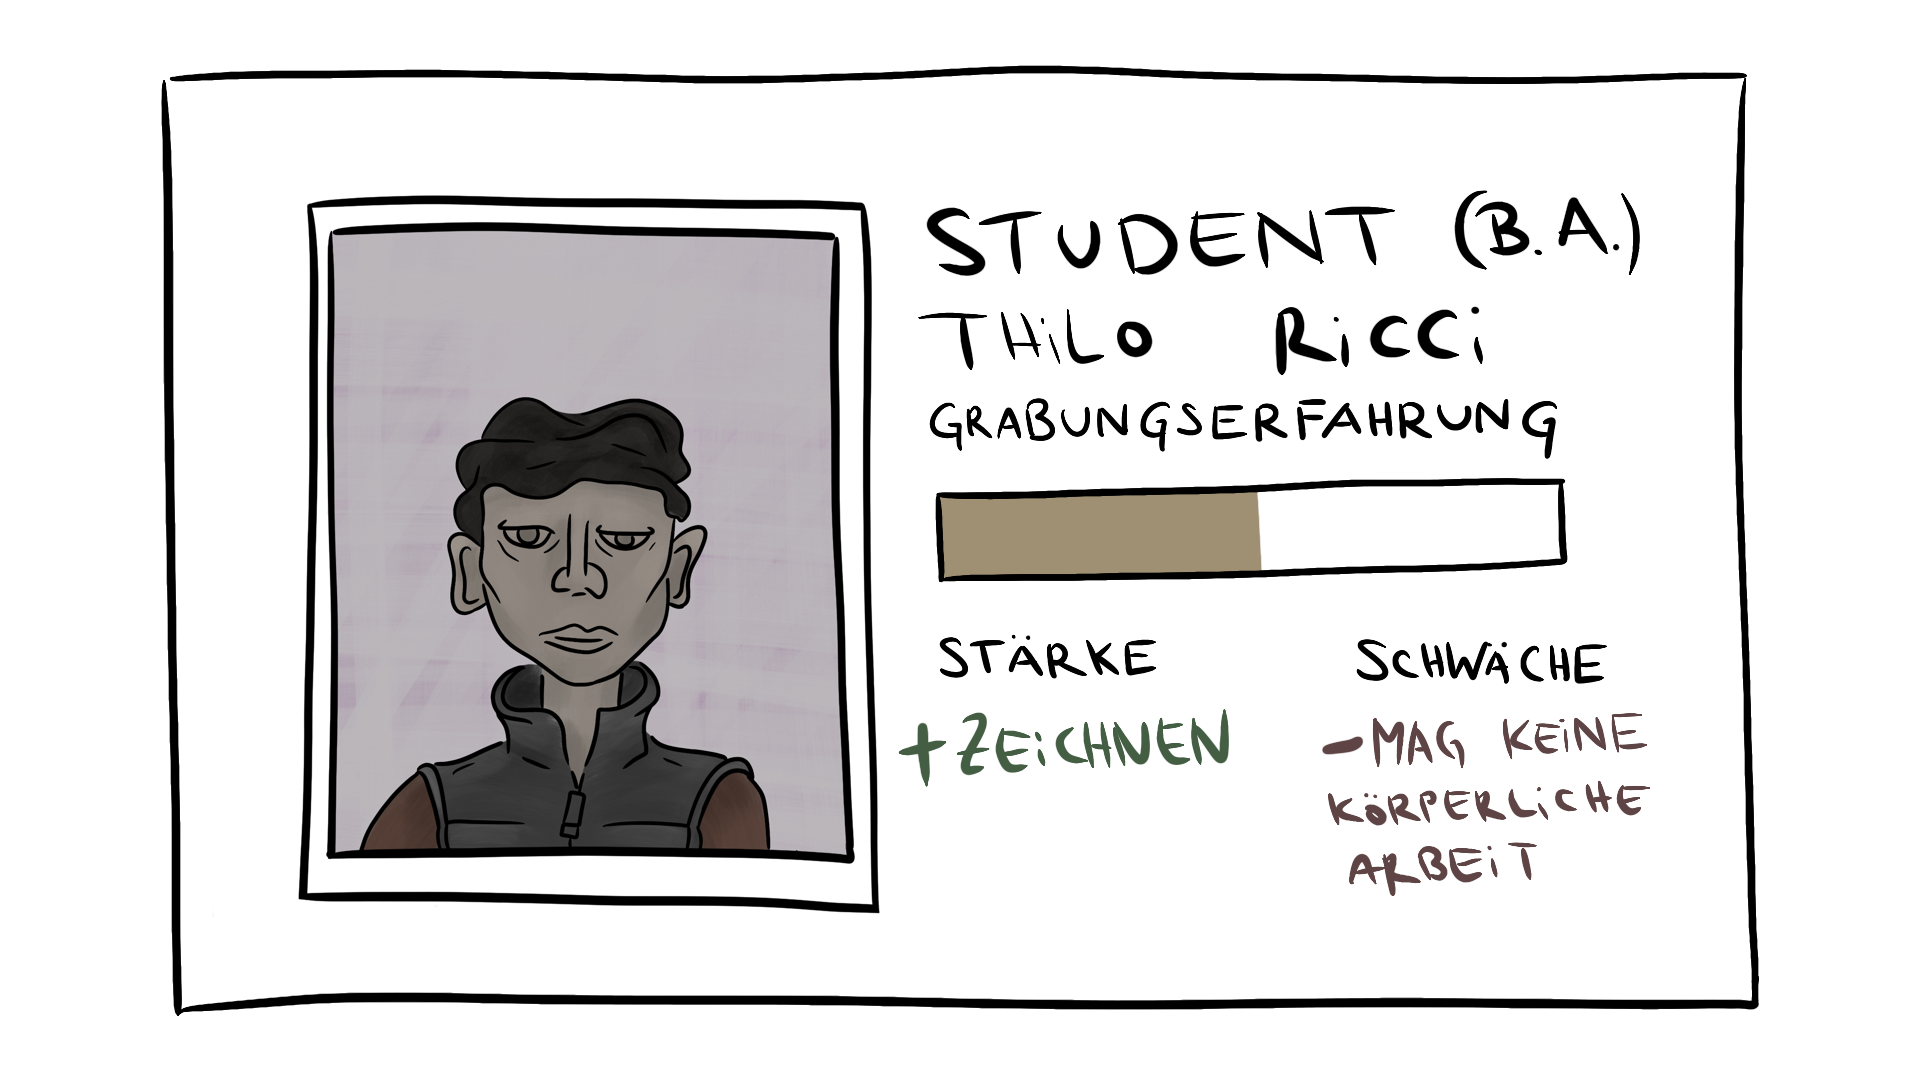 STUDENT (B.A.)
THiLO RiCCi
GRABUNGSERFAHRUNG
STÄRKE
SCHWÄCHE
+ZEiCHNEN
-MAG KEiNE
KÖRPERLiCHE
ARBEiT